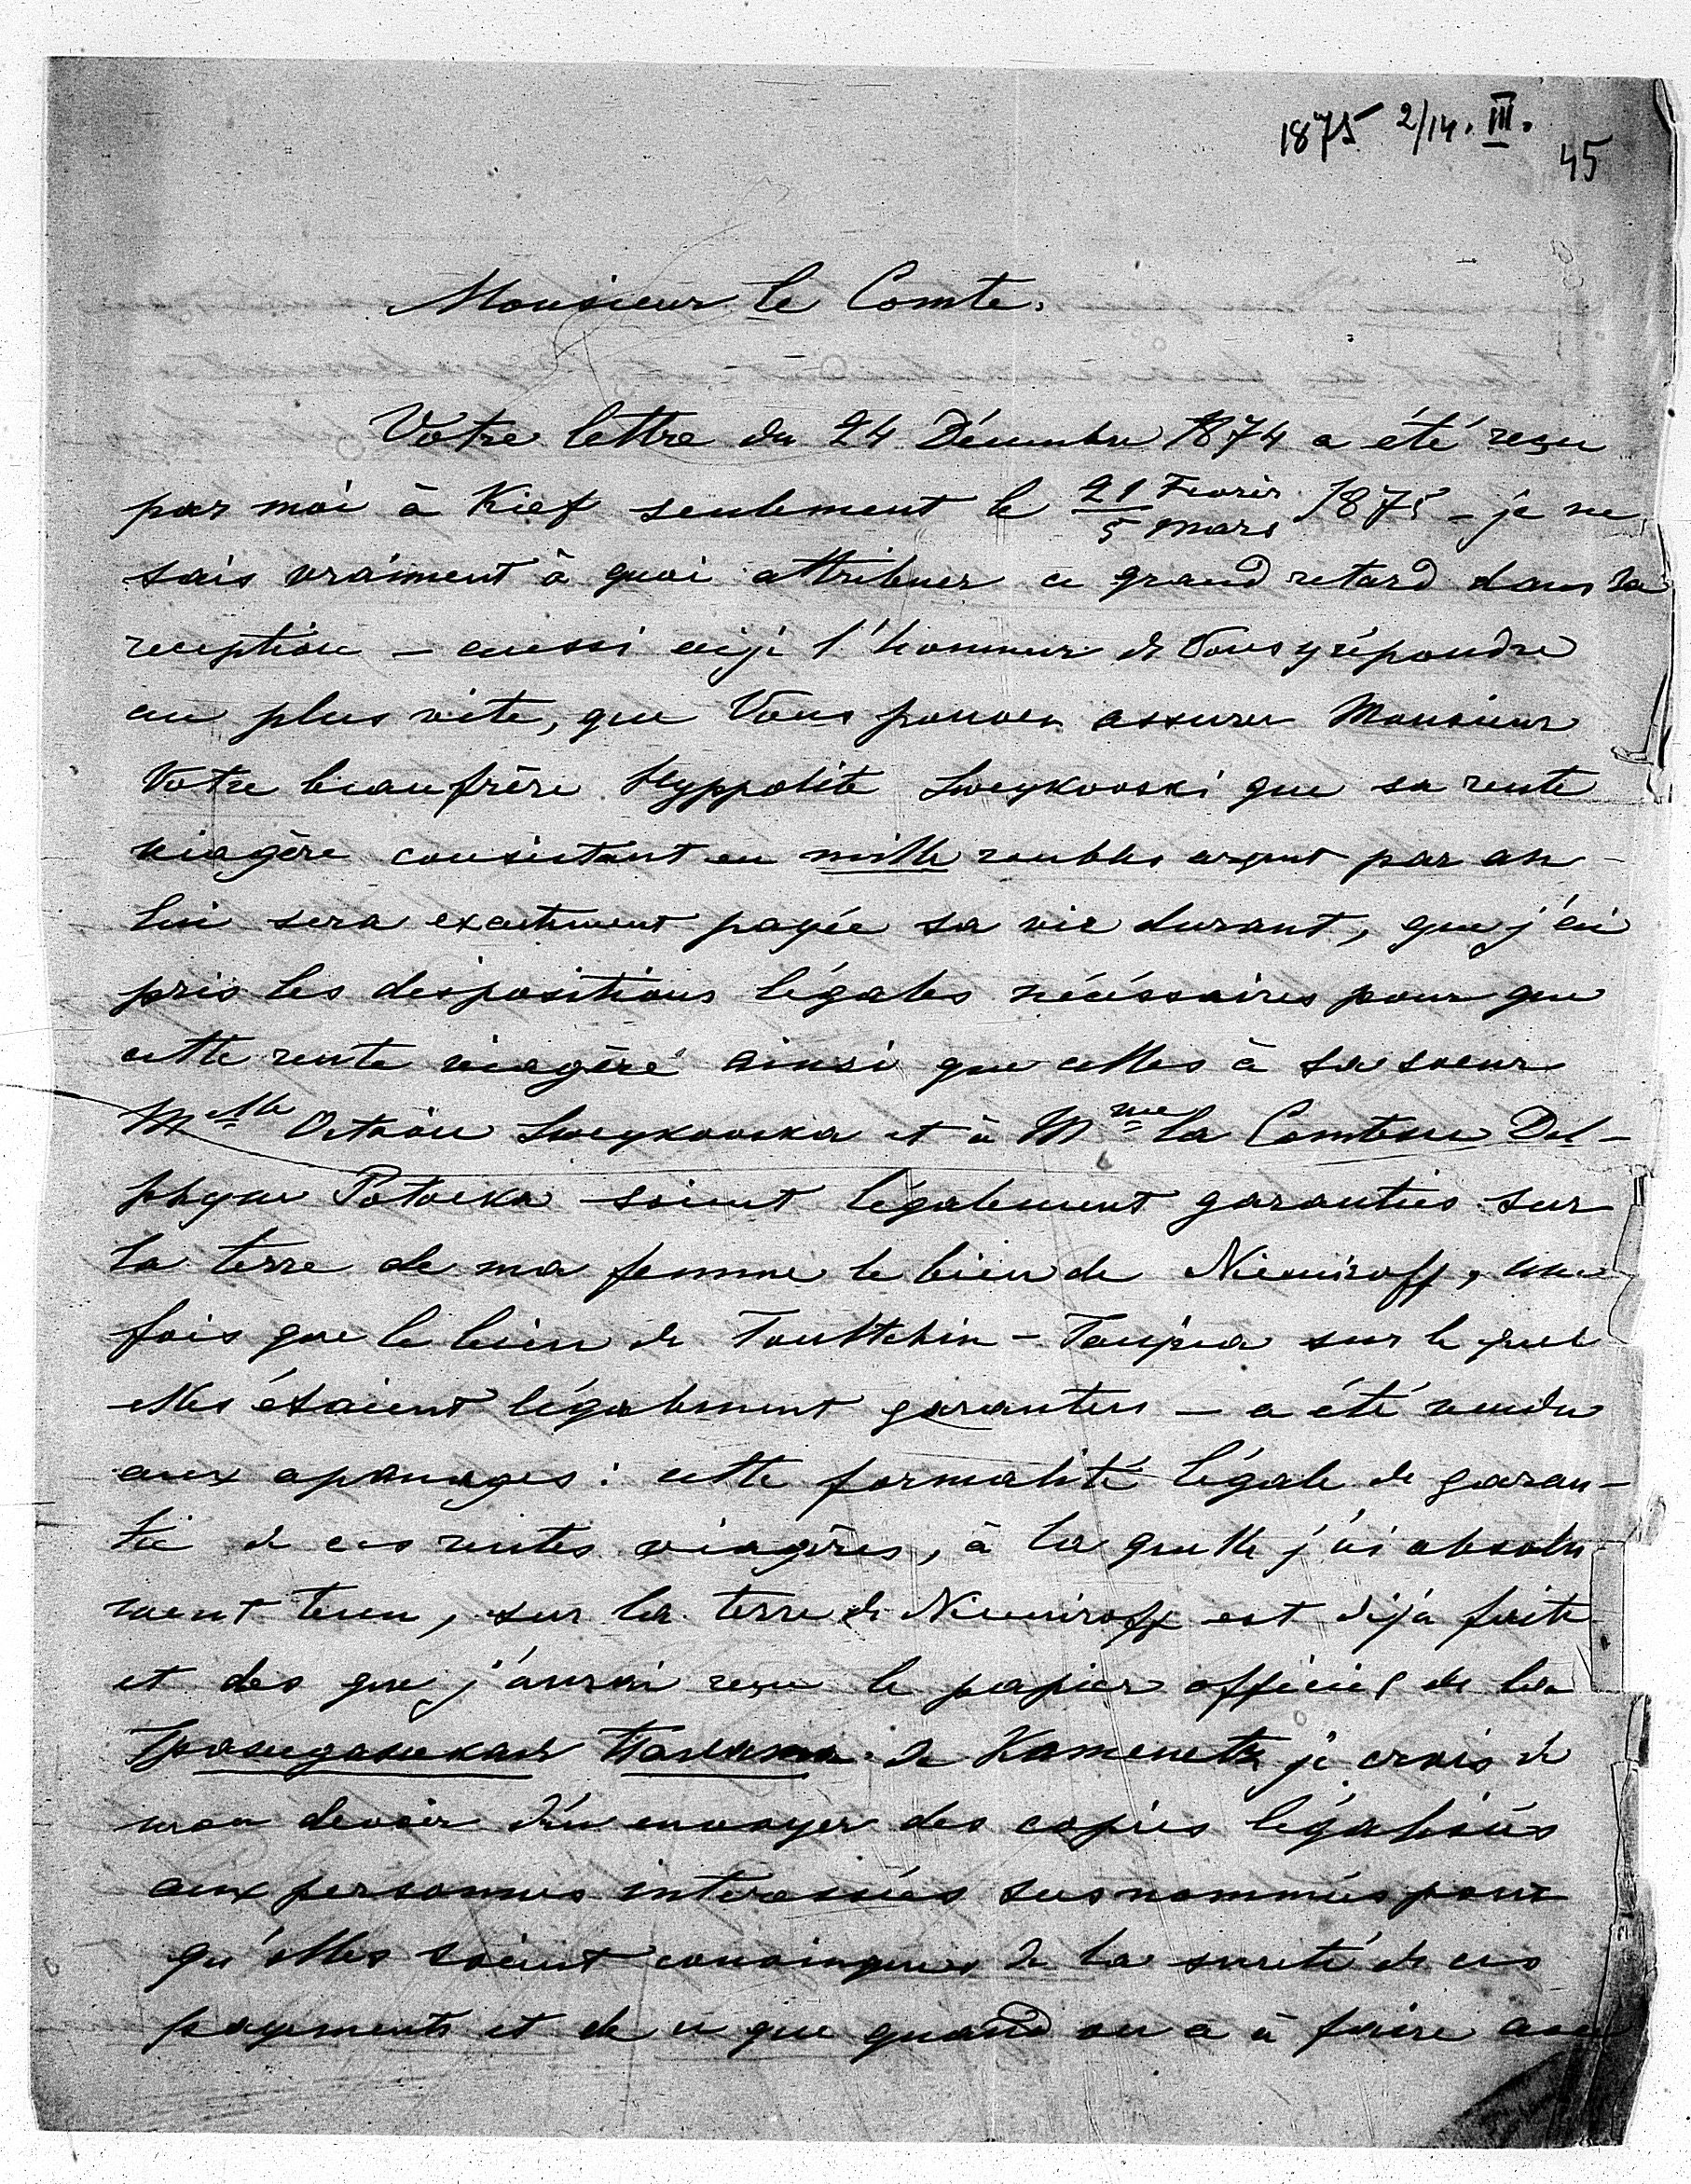 1875 2/14. III.
45
Monsieur le Comte.
Votre lettre du 24 Décembre 1874 a été reçu
par moi à Kief seulement le 21 Fevrier / 5 Mars 1875 – je ne
sais vraiment à quoi attribuer ce grand retard dans sa
reception – aussi ai-je l'honneur de Vous y répondre
au plus vite, que Vous pouvez assurer Monsieur
Votre beaufrère Hyppolite Sweykovski que sa rente
viagère consistant en mille roubles argent par an
lui sera exactement payée sa vie durant, que j'ai
pris les despositions légales nécéssaires pour que
cette rente viagère ainsi que celles à sa soeur
Melle Octavie Sweykovska et à Mme la Comtesse Del-
phyne Potocka soient légalement garanties sur
la terre de ma femme le bien de Niemiroff, une
fois que le bien de Toultchin – sur le quel
elles étaient légalement garanties – a été vendu
aux apanages : cette formalité légale de garan-
tie de ces rentes viagères, à la quelle j'ai absolu
ment tenu, sur la terre de Niemiroff est déjà faite
et des que j'aurai reçu le papier officiel de la
Гражданская Палата de Kamenetz je crois de
mon devoir d'en envoyer des copies légalisées
aux personnes interessées susnommées pour
qu'elles soient convaingues de la sureté de ces
payements et de ce que quand on a à faire avec